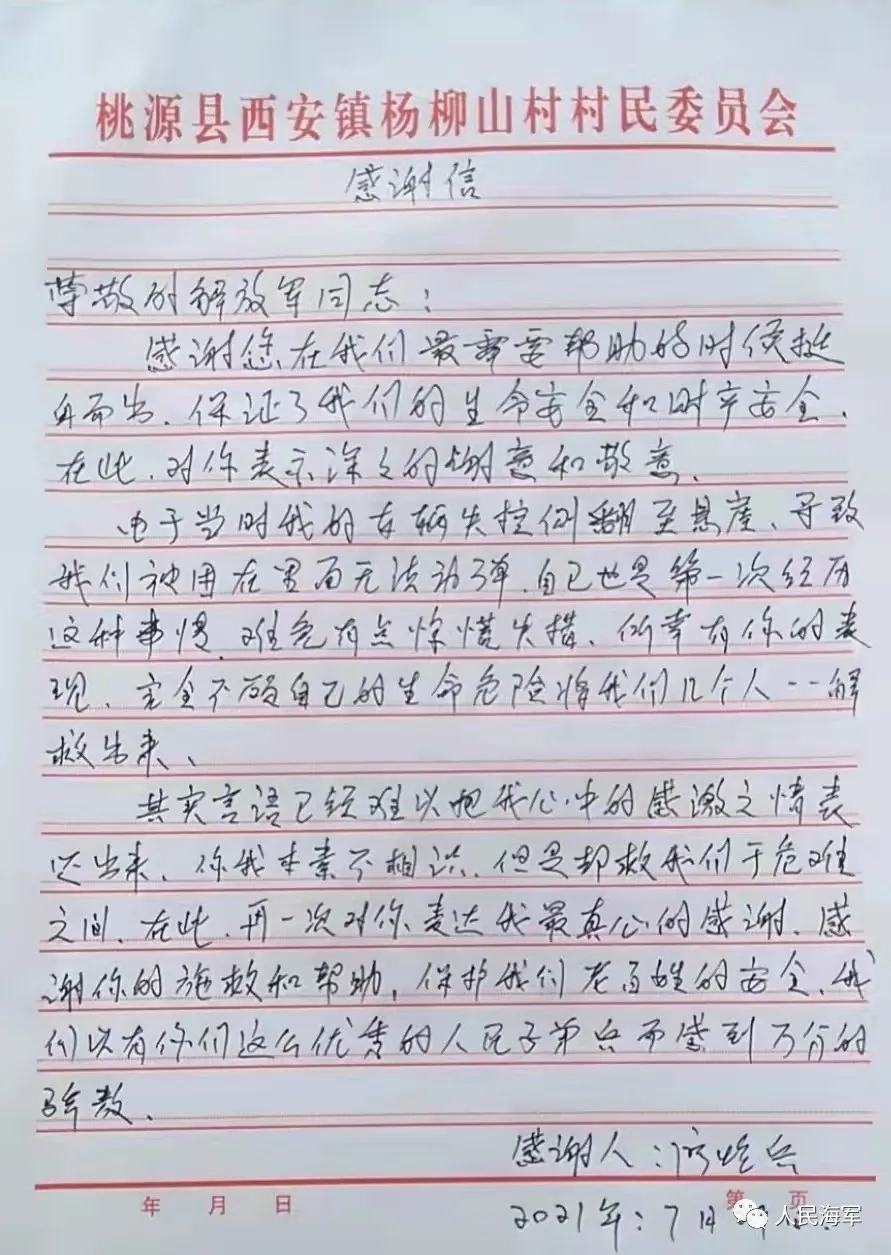 桃源县西安镇杨柳山村村民委员会
感谢信
尊敬的解放军同志：
感谢您在我们最需要帮助的时候挺
身而出、保证了我们的生命安全和财产安全、
在此、对你表示深深的谢意和敬意、
由于当时我的车辆失控侧翻至悬崖、导致
我们被困在里面无法动弹、自己也是第一次经历
这种事情、难免有点惊慌失措、所幸有你的表
现、完全不顾自己的生命危险将我们几个人一一解
救出来、
其实言语已经难以把我心中的感激之情表
达出来、你我本素不相识、但是却救我们于危难
之间、在此、再一次对你表达我最真心的感谢、感
谢你的施救和帮助，保护我们老百姓的安全、我
们以有你们这么优秀的人民子弟兵而感到万分的
骄傲、
感谢人：兵
年 月 日 第 页
2021年：7月
人民海军